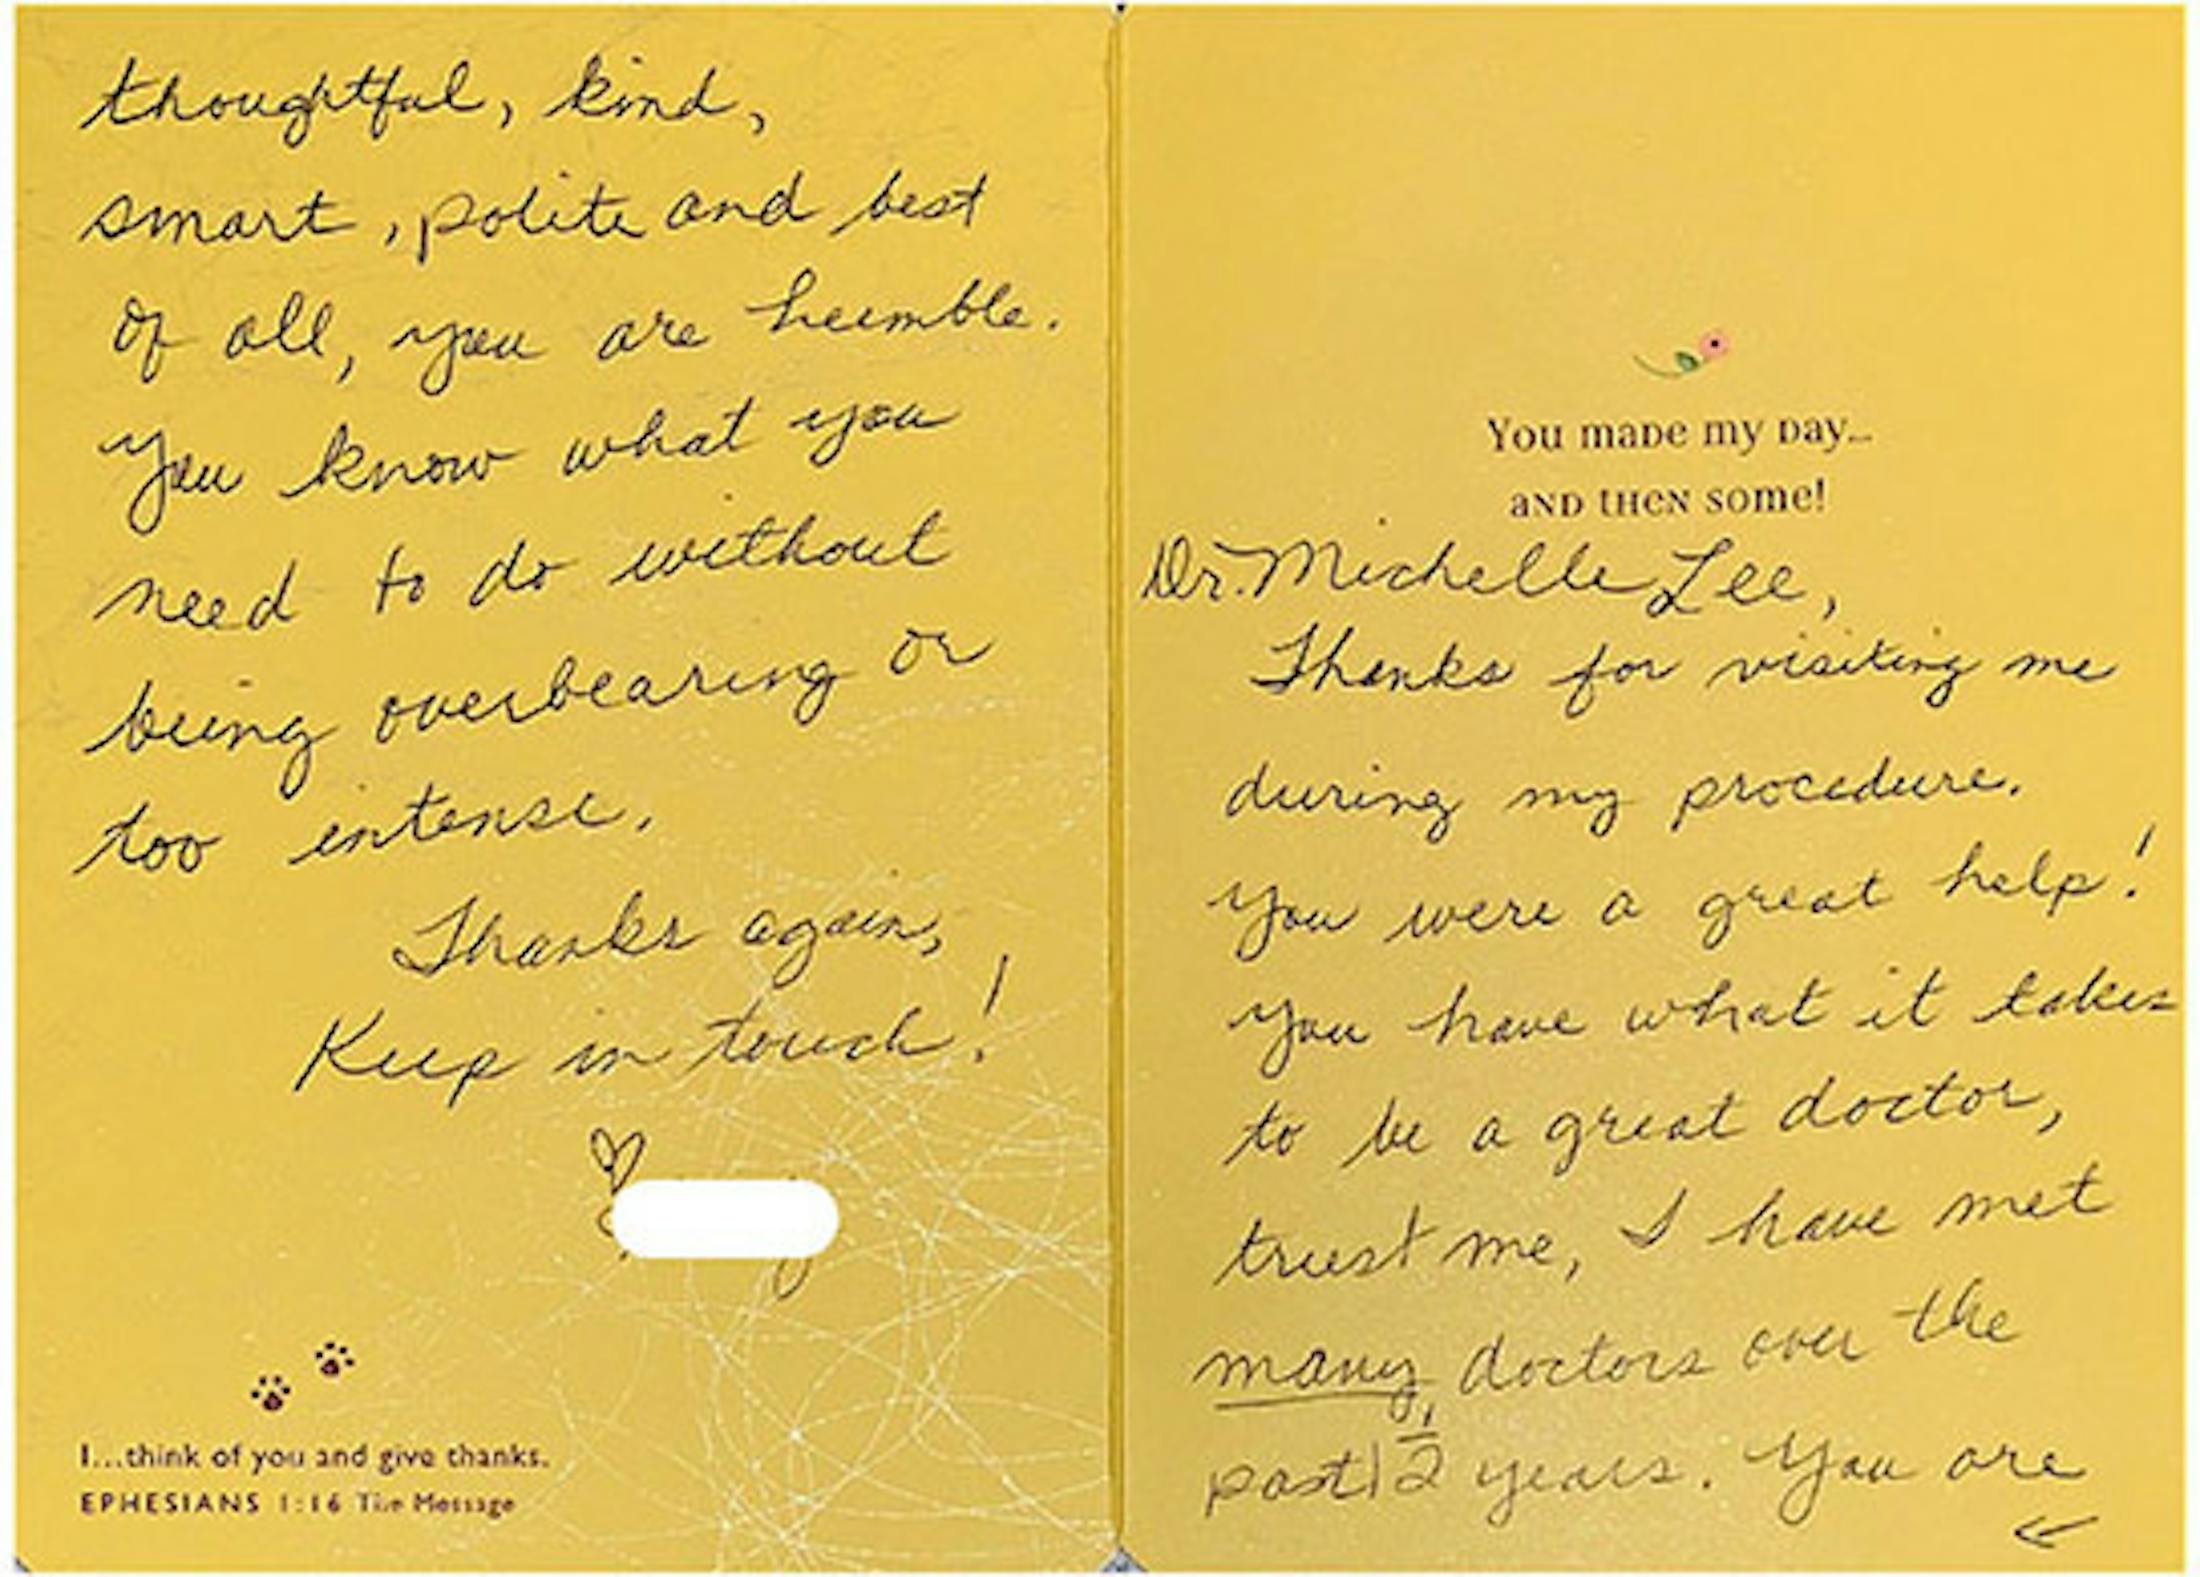 You made my day...
and then some!
Dr. Michelle Lee,
Thanks for visiting me
during my procedure.
You were a great help!
You have what it takes
to be a great doctor,
trust me, I have met
many doctors over the
past 1 1/2 years. You are
←
thoughtful, kind,
smart, polite and best
of all, you are humble.
You know what you
need to do without
being overbearing or
too intense.
Thanks again,
Keep in touch!
I...think of you and give thanks.
EPHESIANS 1:16 The Message